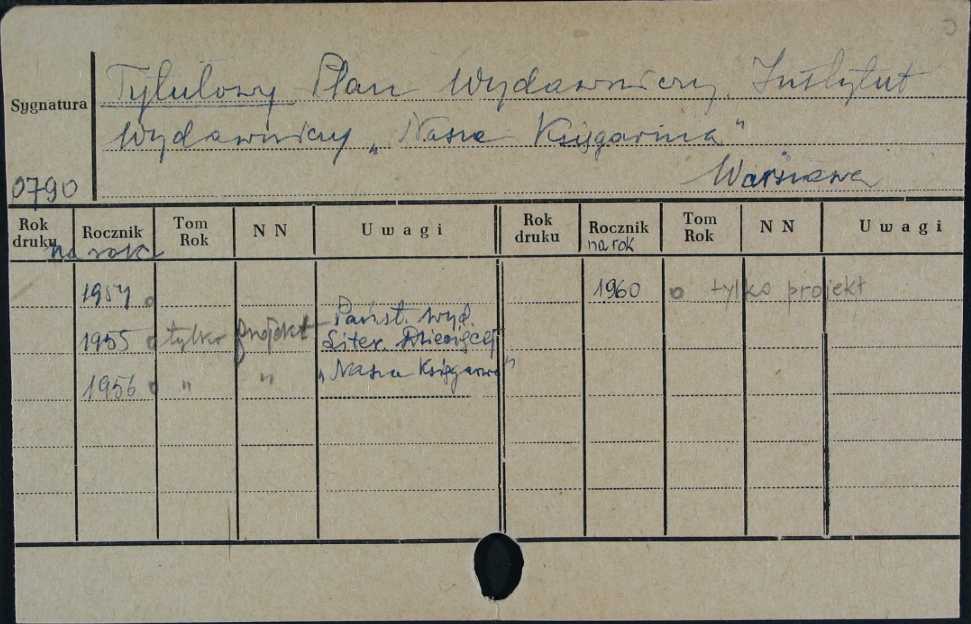 Tytułowy Plan Wydawniczy. Instytut
Sygnatura
Wydawniczy „Nasza Księgarnia"
Warszawa
0790
Rok druku Rocznik Tom Rok NN Uwagi Rok druku Rocznik Tom Rok NN Uwagi
na rok na rok
1954 o 1960 o tylko projekt
1955 o tylko projekt Państ. Wyd.
Liter. Dziecięcej
1956 o " " „Nasza Księgarnia"